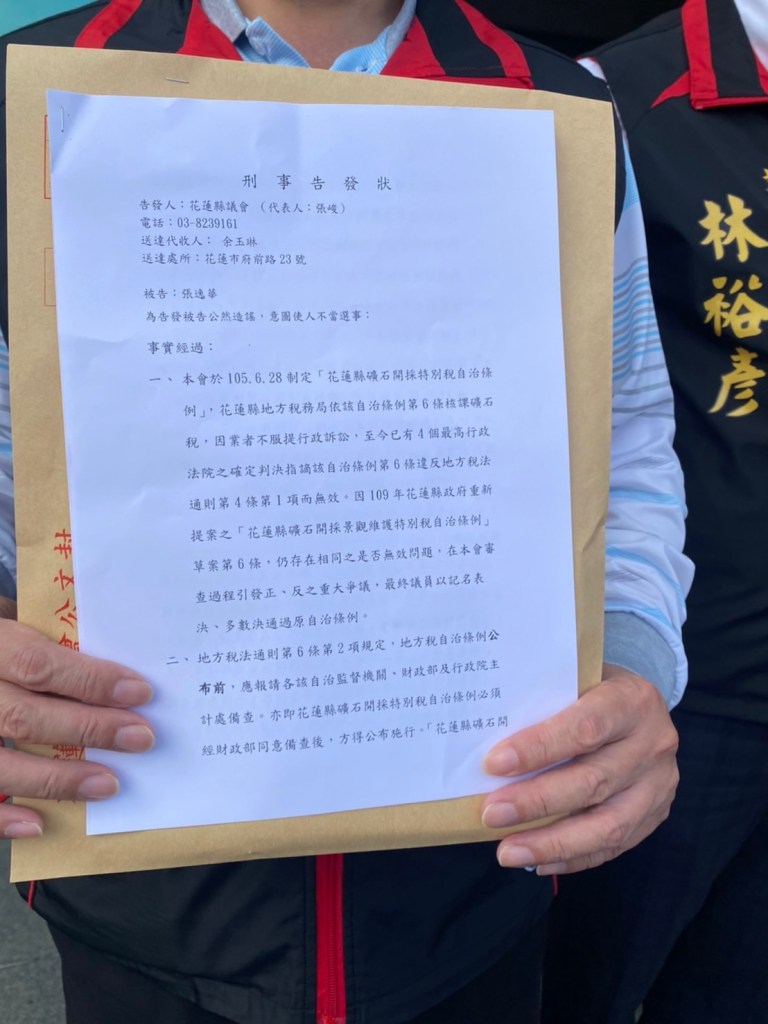 刑事告發狀
告發人：花蓮縣議會 （代表人：張峻）
電話：03-8239161
送達代收人： 余玉琳
送達處所：花蓮市府前路23號
被告：張逸華
為告發被告公然造謠，意圖使人不當選事：
事實經過：
一、 本會於105.6.28制定「花蓮縣礦石開採特別稅自治條
例」，花蓮縣地方稅務局依該自治條例第6條核課礦石
稅，因業者不服提行政訴訟，至今已有4個最高行政
法院之確定判決指謫該自治條例第6條違反地方稅法
通則第4條第1項而無效。因109年花蓮縣政府重新
提案之「花蓮縣礦石開採景觀維護特別稅自治條例」
草案第6條，仍存在相同之是否無效問題，在本會審
查過程引發正、反之重大爭議，最終議員以記名表
決、多數決通過原自治條例。
二、 地方稅法通則第6條第2項規定，地方稅自治條例公
布前，應報請各該自治監督機關、財政部及行政院主
計處備查。亦即花蓮縣礦石開採特別稅自治條例必須
經財政部同意備查後，方得公布施行。「花蓮縣礦石開
林裕彥
封
文
公
會